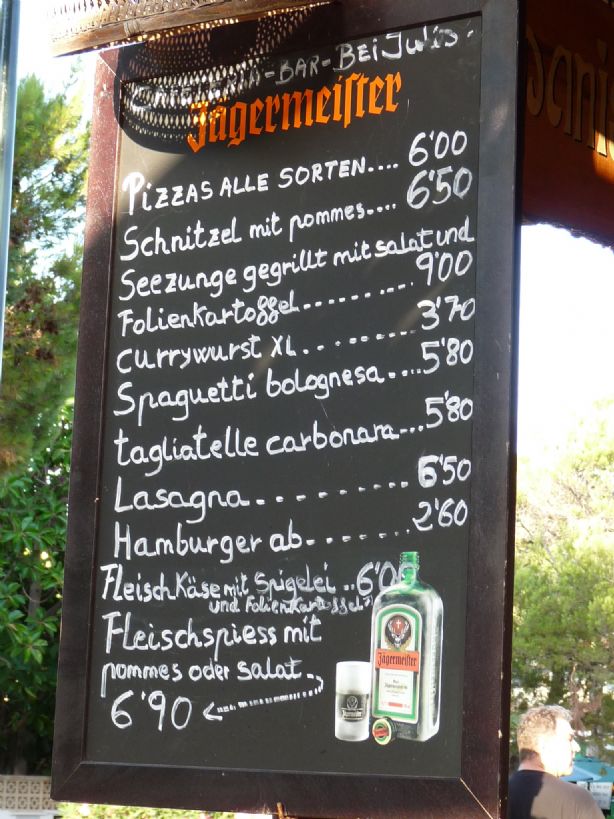 CAFETERIA-BAR-BEI Julis.
Jägermeister
PIZZAS ALLE SORTEN.... 6'00
Schnitzel mit pommes.... 6'50
Seezunge gegrillt mit salat und
Folienkartoggel........... 9'00
currywurst XL........ 3'70
Spaguetti bolognesa.... 5'80
tagliatelle carbonara... 5'80
Lasagna......... 6'50
Hamburger ab....... 2'60
FleischKäse mit Spigelei .. 6'0
und Folienkartoggel
Fleischspiess mit
pommes oder salat.
6'90
Jägermeister